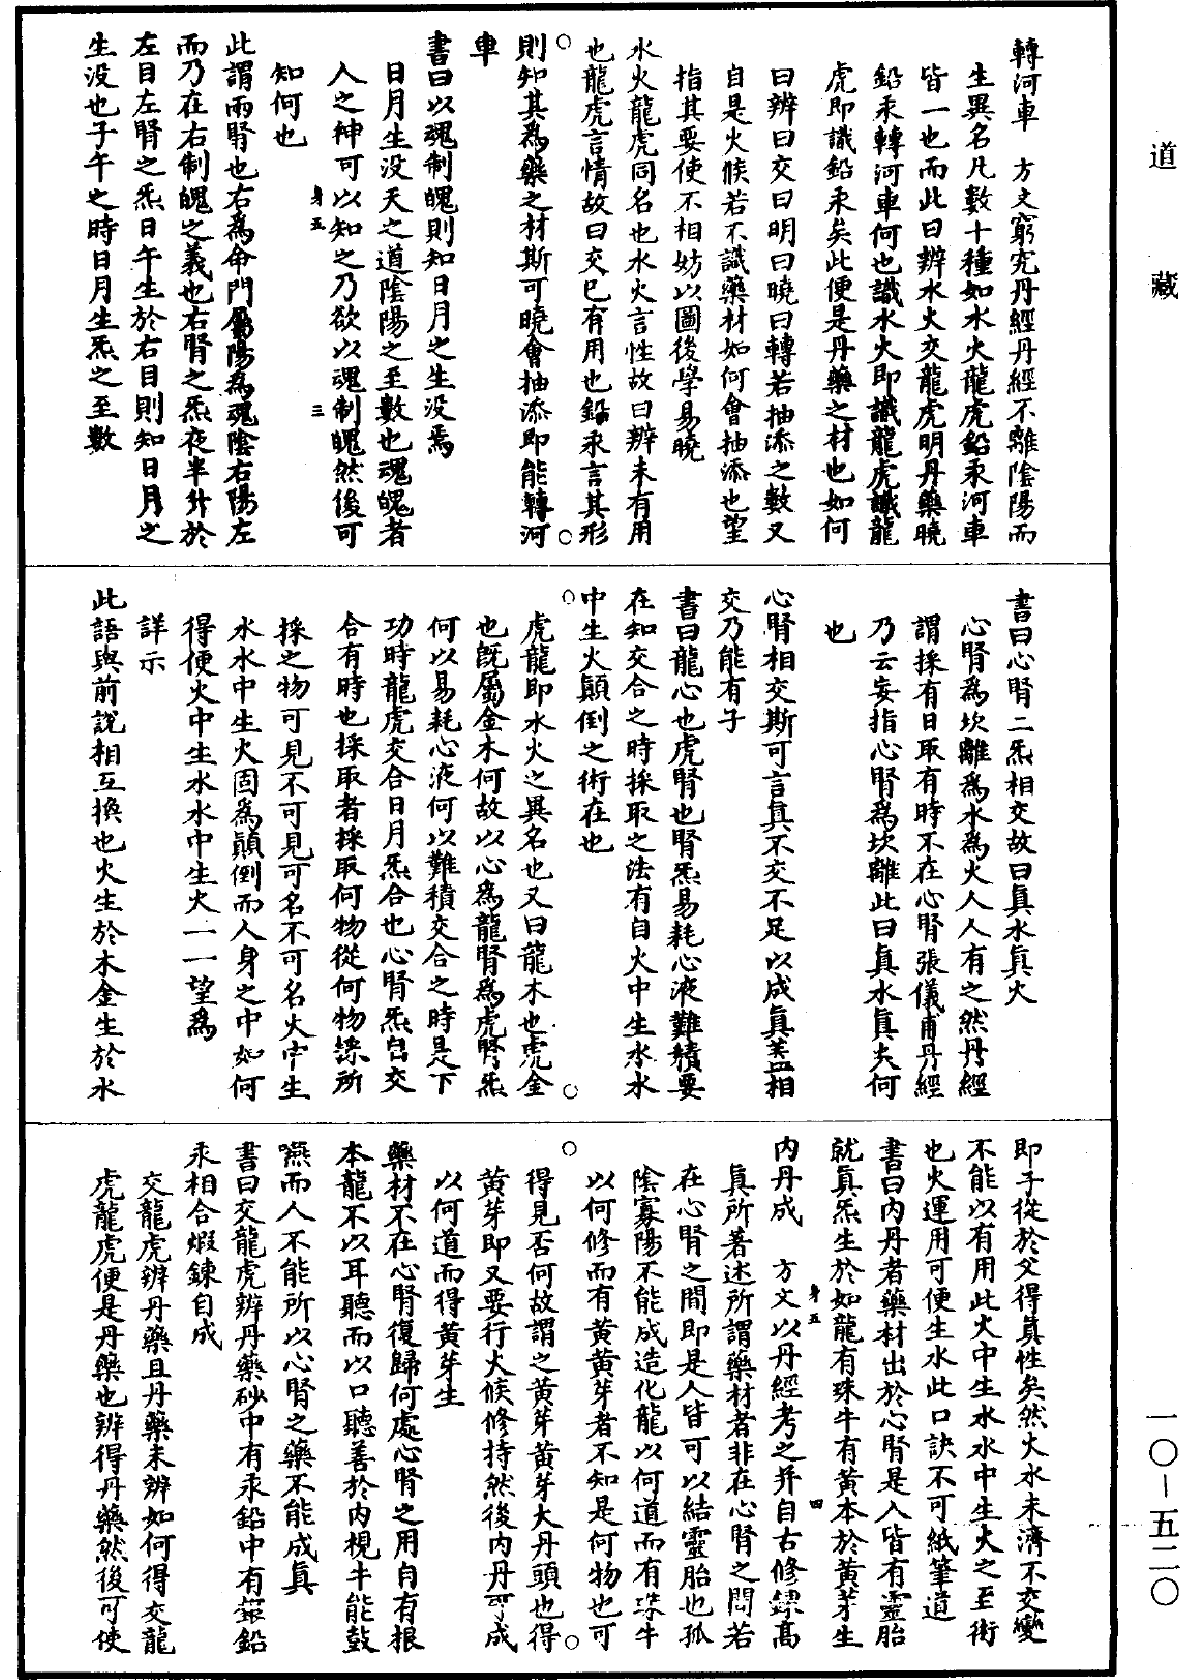 道藏
轉河車　方丈窮究丹經丹經不離陰陽而
生異名凡數十種如水火龍虎鉛汞河車
皆一也而此曰辨水火交龍虎明丹藥曉
鉛汞轉河車何也識水火即識龍虎識龍
虎即識鉛汞矣此便是丹藥之材也如何
曰辨曰交曰明曰曉曰轉若抽添之數又
自是火候若不識藥材如何會抽添也望
指其要使不相妨以圖後學易曉
水火龍虎同名也水火言性故曰辨未有用
也龍虎言情故曰交已有用也鉛汞言其形
則知其為藥之材斯可曉會抽添即能轉河
車
書曰以魂制魄則知日月之生没焉
日月生没天之道陰陽之至數也魂魄者
人之神可以知之乃欲以魂制魄然後可
知何也
身五　三
此謂兩腎也右為命門屬陽為魂陰右陽左
而乃在右制魄之義也右腎之炁夜半升於
左目左腎之炁日午生於右目則知日月之
生没也子午之時日月生炁之至數
書曰心腎二炁相交故曰真水真火
心腎為坎離為水為火人人有之然丹經
謂採有日取有時不在心腎張儀甫丹經
乃云妄指心腎為坎離此曰真水真火何
也
心腎相交斯可言真不交不足以成真蓋相
交乃能有子
書曰龍心也虎腎也腎炁易耗心液難積要
在知交合之時採取之法有自火中生水水
中生火顛倒之術在也
虎龍即水火之異名也又曰龍木也虎金
也既屬金木何故以心為龍腎為虎腎炁
何以易耗心液何以難積交合之時是下
功時龍虎交合日月炁合也心腎炁自交
合有時也採取者採取何物從何物採所
採之物可見不可見可名不可名火中生
水水中生火固為顛倒而人身之中如何
得便火中生水水中生火一一望為
詳示
此語與前說相互換也火生於木金生於水
即子從於父得真性矣然火水未濟不交變
不能以有用此火中生水水中生火之至術
也火運用可便生水此口訣不可紙筆道
書曰内丹者藥材出於心腎是人皆有靈胎
就真炁生於如龍有珠牛有黄本於黄芽生
内丹成　方丈以丹經考之并自古修鍊高
身五　四
真所著述所謂藥材者非在心腎之間若
在心腎之間即是人皆可以結靈胎也孤
陰寡陽不能成造化龍以何道而有珠牛
以何修而有黄黄芽者不知是何物也可
得見否何故謂之黄芽黄芽大丹頭也得
黄芽即又要行火候修持然後内丹可成
以何道而得黄芽生
藥材不在心腎復歸何處心腎之用自有根
本龍不以耳聽而以口聽善於内視牛能鼓
嚥而人不能所以心腎之藥不能成真
書曰交龍虎辨丹藥砂中有汞鉛中有銀鉛
汞相合煆鍊自成
交龍虎辨丹藥且丹藥未辨如何得交龍
虎龍虎便是丹藥也辨得丹藥然後可使
一〇—五二〇